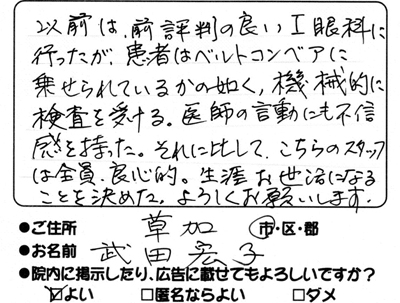 以前は、前評判の良いI眼科に
行ったが、患者はベルトコンベアに
乗せられているかの如く、機械的に
検査を受ける。医師の言動にも不信
感を持った。それに比して、こちらのスタッフ
は全員、良心的。生涯お世話になる
ことを決めた。よろしくお願いします。
●ご住所 草加 市・区・郡
●お名前 武田宏子
●院内に掲示したり、広告に載せてもよろしいですか？
☑よい □匿名ならよい □ダメ